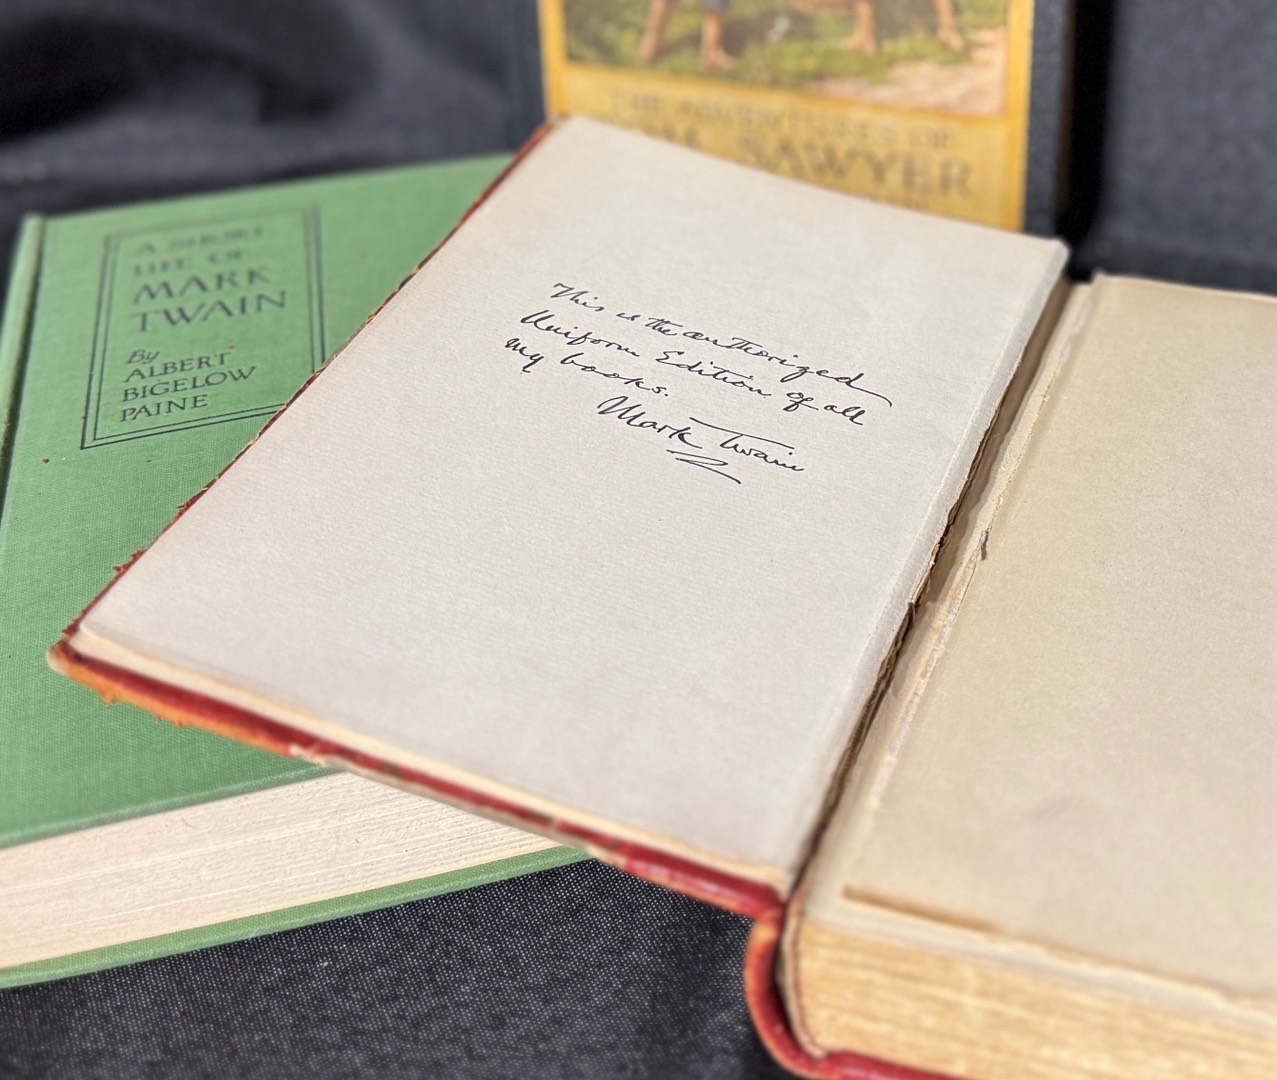 THE ADVENTURES OF
TOM SAWYER
A SHORT
LIFE OF
MARK
TWAIN
By
ALBERT
BIGELOW
PAINE
This is the authorized
Uniform Edition of all
my books.
Mark Twain